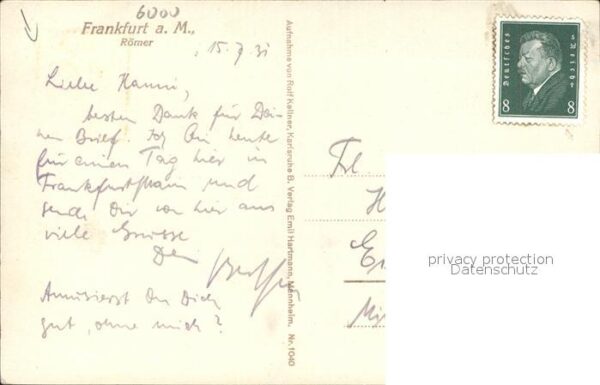 6000
Frankfurt a. M.,
Römer
15.7.31
Liebe Hanni,
besten Dank für Dei-
nen Brief. Ich bin heute
für einen Tag hier in
Frankfurt/Main und
sende Dir von hier aus
viele Grüsse
Dein
Amüsierst Du Dich
gut, ohne mich?
Aufnahme von Rolf Kellner, Karlsruhe B. Verlag Emil Hartmann, Mannheim. Nr. 1040
Deutsches Reich
8 8
Frl.
H
E
Mi
privacy protection
Datenschutz